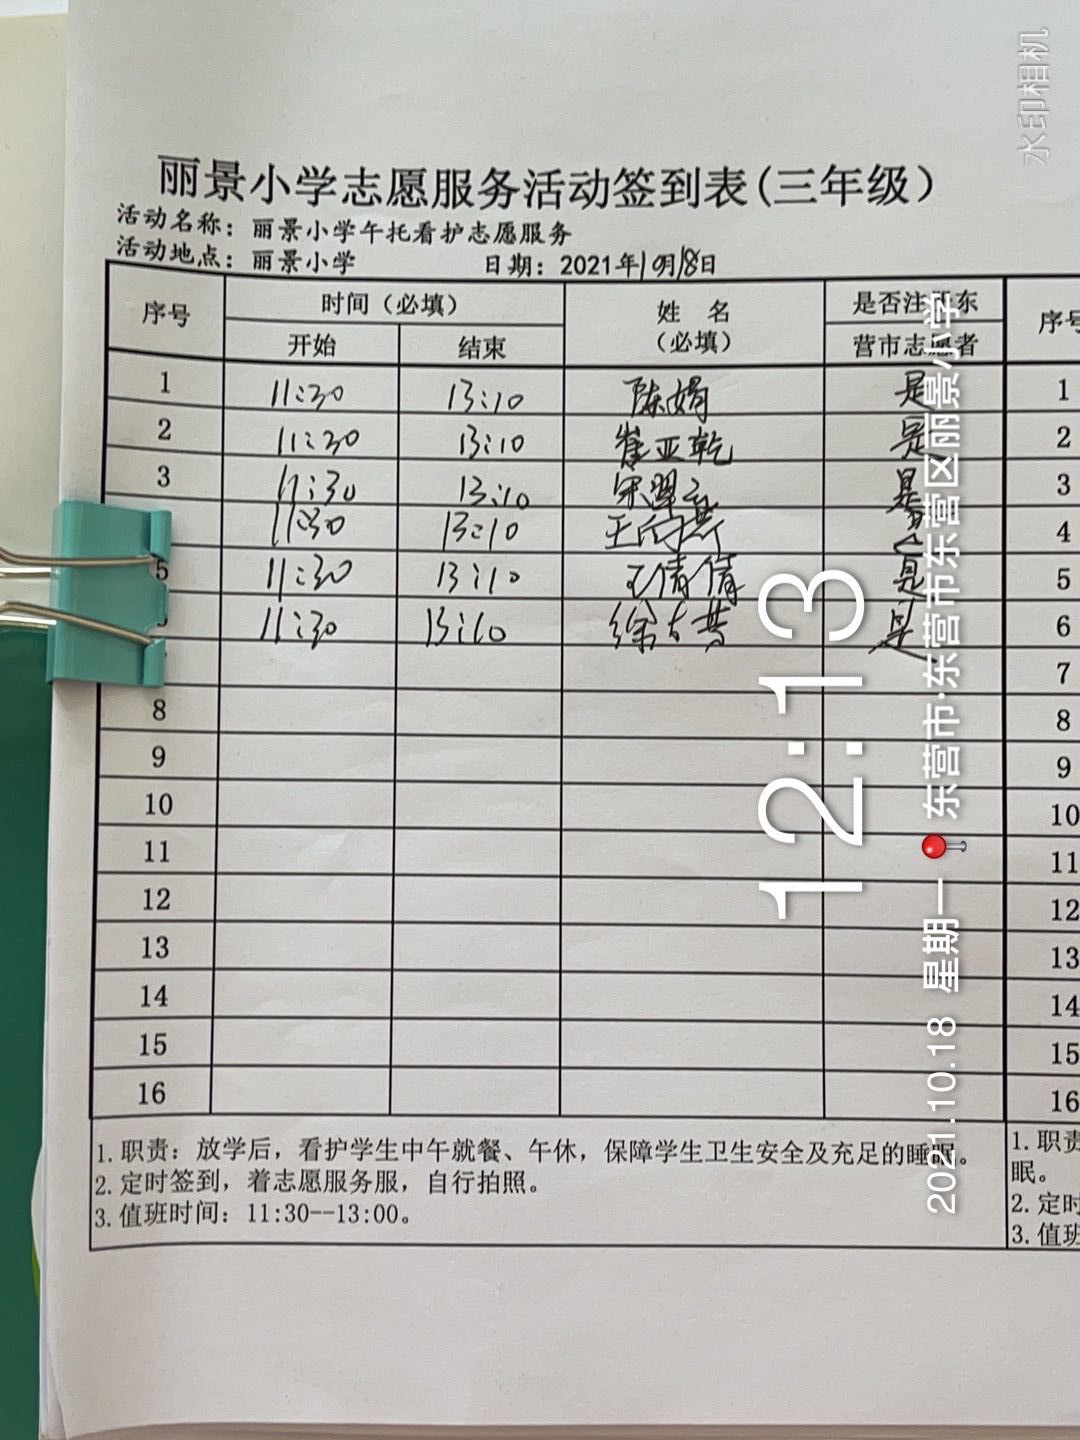 水印相机
丽景小学志愿服务活动签到表(三年级）
活动名称：丽景小学午托看护志愿服务
活动地点：丽景小学 日期：2021年10月18日
序号 时间（必填） 姓 名 是否注册东 序号
开始 结束 （必填） 营市志愿者
1 11:30 13:10 陈娟 是 1
2 11:30 13:10 崔亚乾 是 2
3 11:30 13:10 是 3
11:30 13:10 王向燕 是 4
5 11:30 13:10 王倩倩 是 5
11:30 13:10 徐 是 6
7
8 8
9 9
10 10
11 11
12 12
13 13
14 14
15 15
16 16
1.职责：放学后，看护学生中午就餐、午休，保障学生卫生安全及充足的睡眠。 1.职责
眠。
2.定时签到，着志愿服务服，自行拍照。 2.定时
3.值班时间：11:30--13:00。 3.值班
12:13
2021.10.18 星期一 东营市·东营市东营区丽景小学